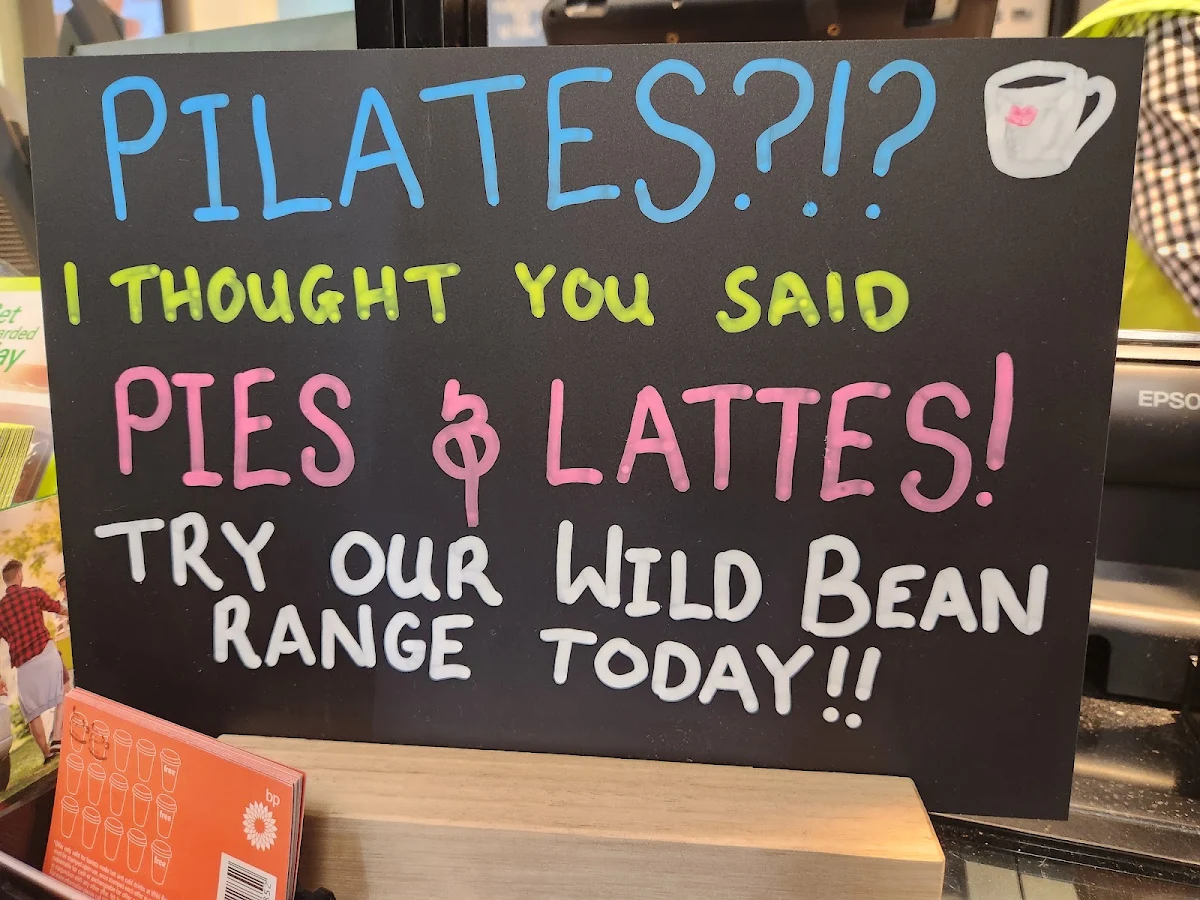 PILATES?!?
I THOUGHT YOU SAID
PIES & LATTES!
TRY OUR WILD BEAN
RANGE TODAY!!
EPSO
ay
bp
free
free
free